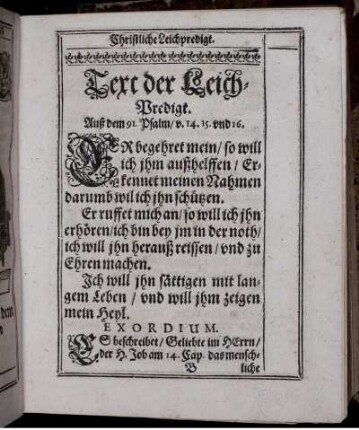 Christliche Leichpredigt.
Text der Leich-
Predigt.
Auß dem 91. Psalm/ v. 14. 15. vnd 16.
ER begehret mein/ so will
ich jhm außhelffen/ Er-
kennet meinen Nahmen
darumb wil ich jhn schützen.
Er ruffet mich an/ so will ich jhn
erhören/ ich bin bey jm in der noth/
ich will jhn herauß reissen/ vnd zu
Ehren machen.
Ich will jhn sättigen mit lan-
gem Leben/ vnd will jhm zeigen
mein Heyl.
EXORDIUM.
ES beschreibet/ Geliebte im HErrn/
der H. Job am 14. Cap. das mensch-
B liche